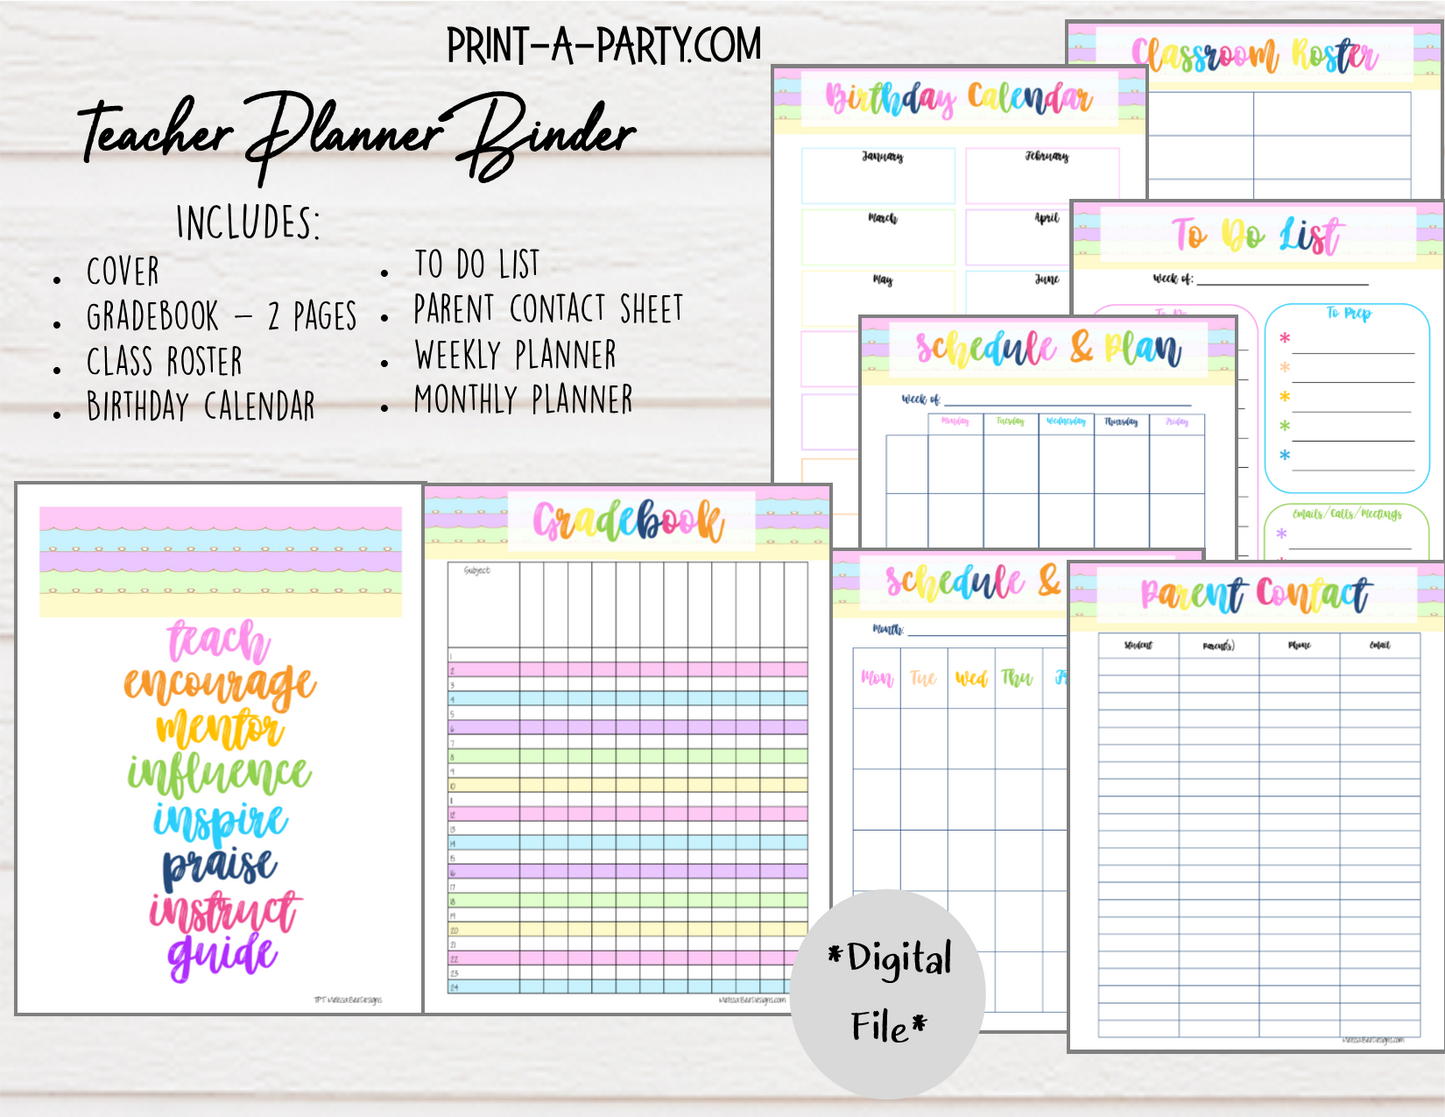 PRINT-A-PARTY.COM
Teacher Planner Binder
INCLUDES:
• COVER
• GRADEBOOK – 2 PAGES
• CLASS ROSTER
• BIRTHDAY CALENDAR
• TO DO LIST
• PARENT CONTACT SHEET
• WEEKLY PLANNER
• MONTHLY PLANNER
Classroom Roster
Birthday Calendar
January
February
March
April
May
June
To Do List
Week of:
To Do
To Prep
*
*
*
*
*
Emails/Calls/Meetings
*
Schedule & Plan
Week of:
Monday Tuesday Wednesday Thursday Friday
teach
encourage
mentor
influence
inspire
praise
instruct
guide
TPT MelissaBearDesigns
Gradebook
Subject:
1
2
3
4
5
6
7
8
9
10
11
12
13
14
15
16
17
18
19
20
21
22
23
24
MelissaBearDesigns.com
Schedule &
Month:
Mon Tue Wed Thu
Parent Contact
Student Parent(s) Phone Email
MelissaBearDesigns.com
*Digital
File*